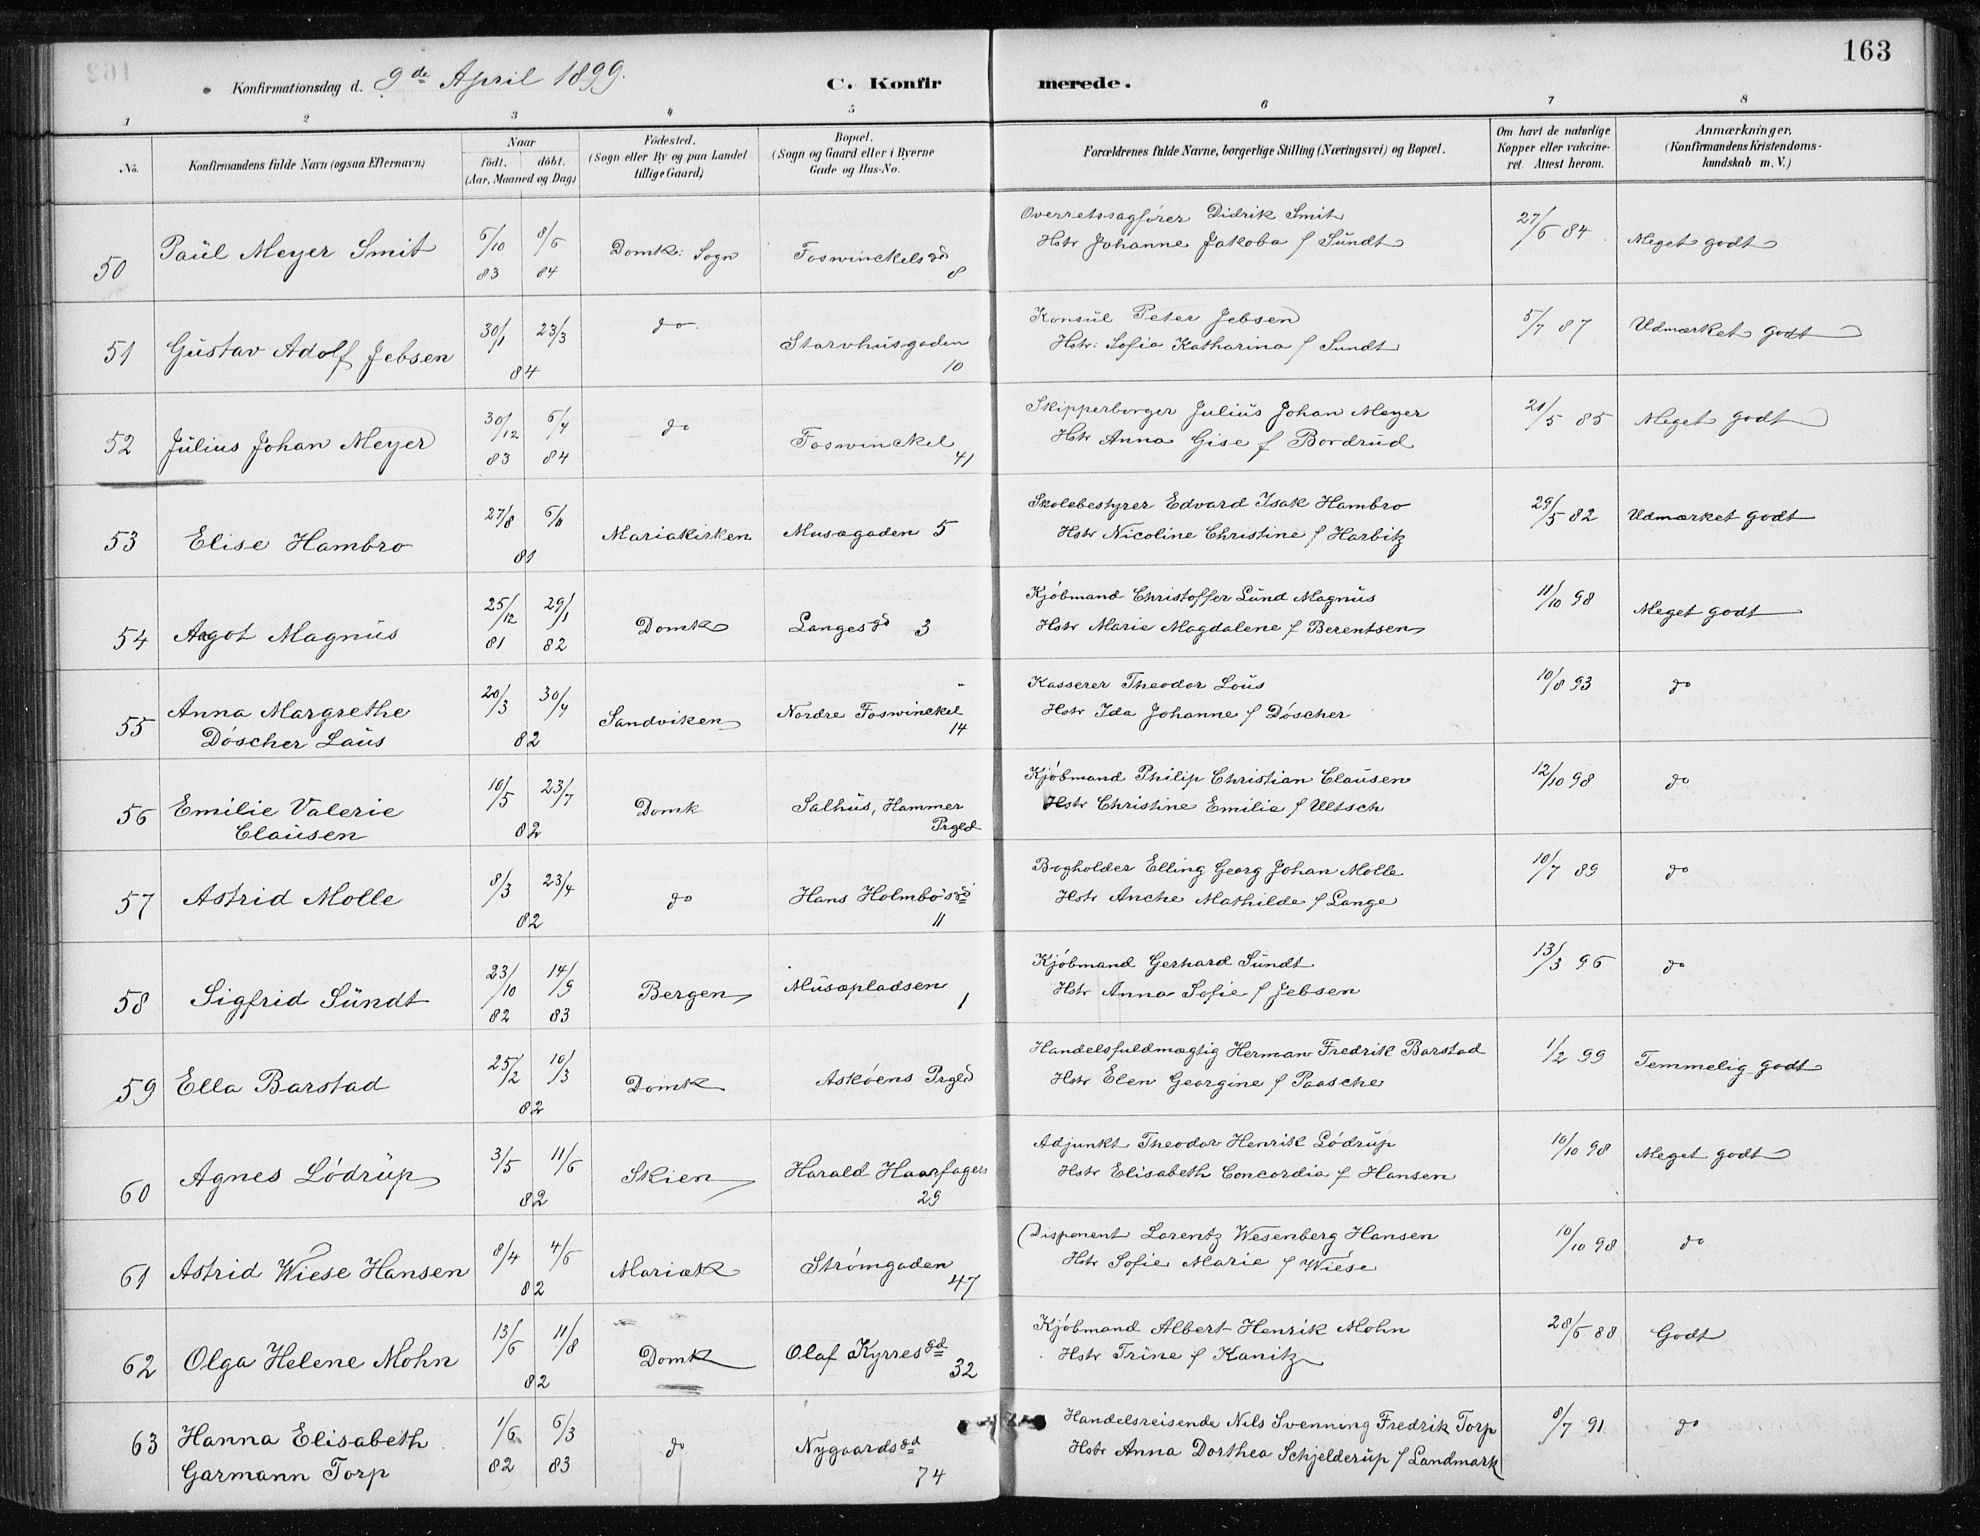 163
Konfirmationsdag d. 9de April 1899.
C. Konfirmerede.
1 2 3 4 5 6 7 8
No.
Konfirmandens fulde Navn (ogsaa Efternavn)
Naar
födt. döbt.
(Aar, Maaned og Dag)
Födested.
(Sogn eller By og paa Landet
tillige Gaard)
Bopæl.
(Sogn og Gaard eller i Byerne
Gade og Hus-No.
Forældrenes fulde Navne, borgerlige Stilling (Næringsvei) og Bopæl.
Om havt de naturlige
Kopper eller vakcine-
ret. Attest herom.
Anmærkninger,
(Konfirmandens Kristendoms-
kundskab m. V.)
50 Paul Meyer Smit 6/10 83 8/6 84 Domk: Sogn Foswinckelsgd 8
Overretssagfører Didrik Smit
Hstr Johanne Jakoba f Sundt
27/6 84 Meget godt
51 Gustav Adolf Jebsen 30/1 23/3 84 do Starvhusgaden 10
Konsul Peter Jebsen
Hstr: Sofia Katharina f Sundt
5/7 87 Udmærket godt
52 Julius Johan Meyer 30/12 83 6/4 84 do Foswinckel 41
Skipperborger Julius Johan Meyer
Hstr Anna Gise f Bordrud
21/5 85 Meget godt
53 Elise Hambro 27/8 6/11 81 Mariakirken Musægaden 5
Skolebestyrer Edvard Isak Hambro
Hstr Nicoline Christine f Harbitz
29/5 82 Udmærket godt
54 Aagot Magnus 25/12 81 29/1 82 Domk Langesgd 3
Kjøbmand Christoffer Lund Magnus
Hstr Marie Magdalene f Berentsen
11/10 98 Meget godt
55 Anna Margrethe
Døscher Laus 20/3 30/4 82 Sandviken Nordre Foswinckel 14
Kasserer Theodor Lous
Hstr Ida Johanne f Døscher
10/8 93 do
56 Emilie Valerie
Clausen 10/5 23/7 82 Domk Salhus, Hammer
Prgld
Kjøbmand Philip Christian Clausen
Hstr Christine Emilie f Ultsch
12/10 98 do
57 Astrid Molle 8/3 23/4 82 do Hans Holmbøsgd 11
Bogholder Elling Georg Johan Molle
Hstr Anche Mathilde f Lange
10/7 89 do
58 Sigfrid Sundt 23/10 82 14/9 83 Bergen Musæpladsen 1
Kjøbmand Gerhard Sundt
Hstr Anna Sofie f Jebsen
13/3 96 do
59 Ella Barstad 25/2 10/3 82 Domk Askøens Prgld
Handelsfuldmægtig Herman Fredrik Barstad
Hstr Elen Georgine f Paasche
1/2 99 Temmelig godt
60 Agnes Lødrup 3/5 11/6 82 Skien Harald Haarfagers 29
Adjunkt Theodor Henrik Lødrup
Hstr Elisabeth Concordia f Hansen
10/10 98 Meget godt
61 Astrid Wiese Hansen 8/4 4/6 82 Mariæk Strømgaden 47
Disponent Lorentz Wesenberg Hansen
Hstr Sofie Marie f Wiese
10/10 98 do
62 Olga Helene Mohn 13/6 11/8 82 Domk Olaf Kyrresgd 32
Kjøbmand Albert Henrik Mohn
Hstr Trine f Kanitz
28/6 88 Godt
63 Hanna Elisabeth
Garmann Torp 1/6 82 6/3 83 do Nygaardsgd 74
Handelsreisende Nils Svenning Fredrik Torp
Hstr Anna Dorthea Schjelderup f Landmark
8/7 91 do